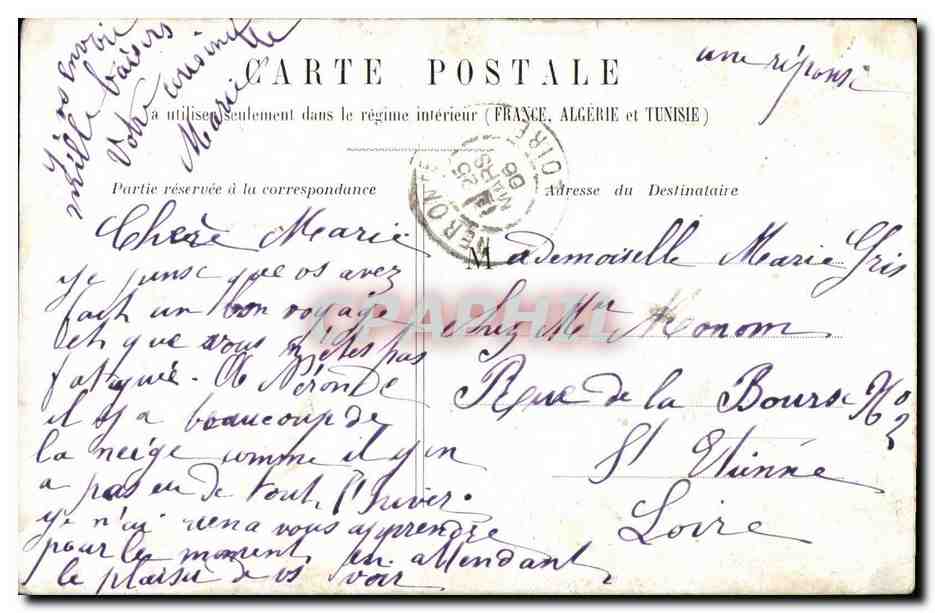 CARTE POSTALE
à utiliser seulement dans le régime intérieur (FRANCE, ALGÉRIE et TUNISIE)
Partie réservée à la correspondance
Adresse du Destinataire
NERONDE
LOIRE
25
MARS
06
Chère Marie
je pense que vs avez
fait un bon voyage
et que vous n'êtes pas
fatiguée. A Néronde
il y a beaucoup de
la neige comme il y en
a pas eu de tout l'hiver.
je n'ai rien a vous apprendre
pour le moment en attendant
le plaisir de vs voir
une réponse
Je vs envoie
mille baisers
Votre cousine
Marie
Mademoiselle Marie Gris
Chez Mr Monom
Rue de la Bourse No 2
St Etienne
Loire
CPAPHIL